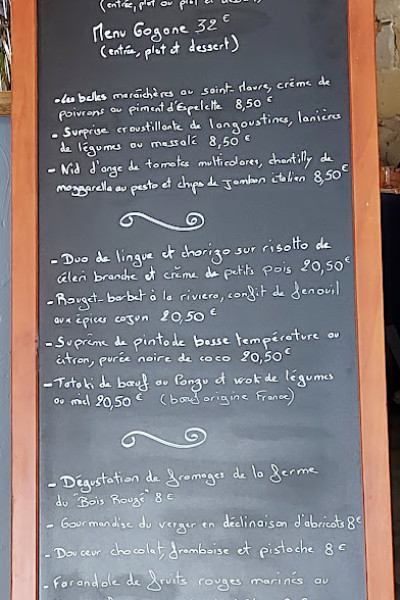 (entrée, plat ou plat et dessert)
Menu Gogane 32 €
(entrée, plat et dessert)
- Les belles maraîchères au saint-Maure, crème de
poivrons au piment d'Espelette 8,50 €
- Surprise croustillante de langoustines, lanières
de légumes au massalé 8,50 €
- Nid d'ange de tomates multicolores, chantilly de
mozzarella au pesto et chips de Jambon italien 8,50 €
- Duo de lingue et chorizo sur risotto de
céleri branche et crème de petits pois 20,50 €
- Rouget-barbet à la riviera, confit de fenouil
aux épices cajun 20,50 €
- Suprême de pintade basse température au
citron, purée noire de coco 20,50 €
- Tataki de bœuf au Ponzu et wok de légumes
au miel 20,50 € (bœuf origine France)
- Dégustation de fromages de la ferme
du "Bois Rouge" 8 €
- Gourmandise du verger en déclinaison d'abricots 8 €
- Douceur chocolat, framboise et pistache 8 €
- Farandole de fruits rouges marinés au